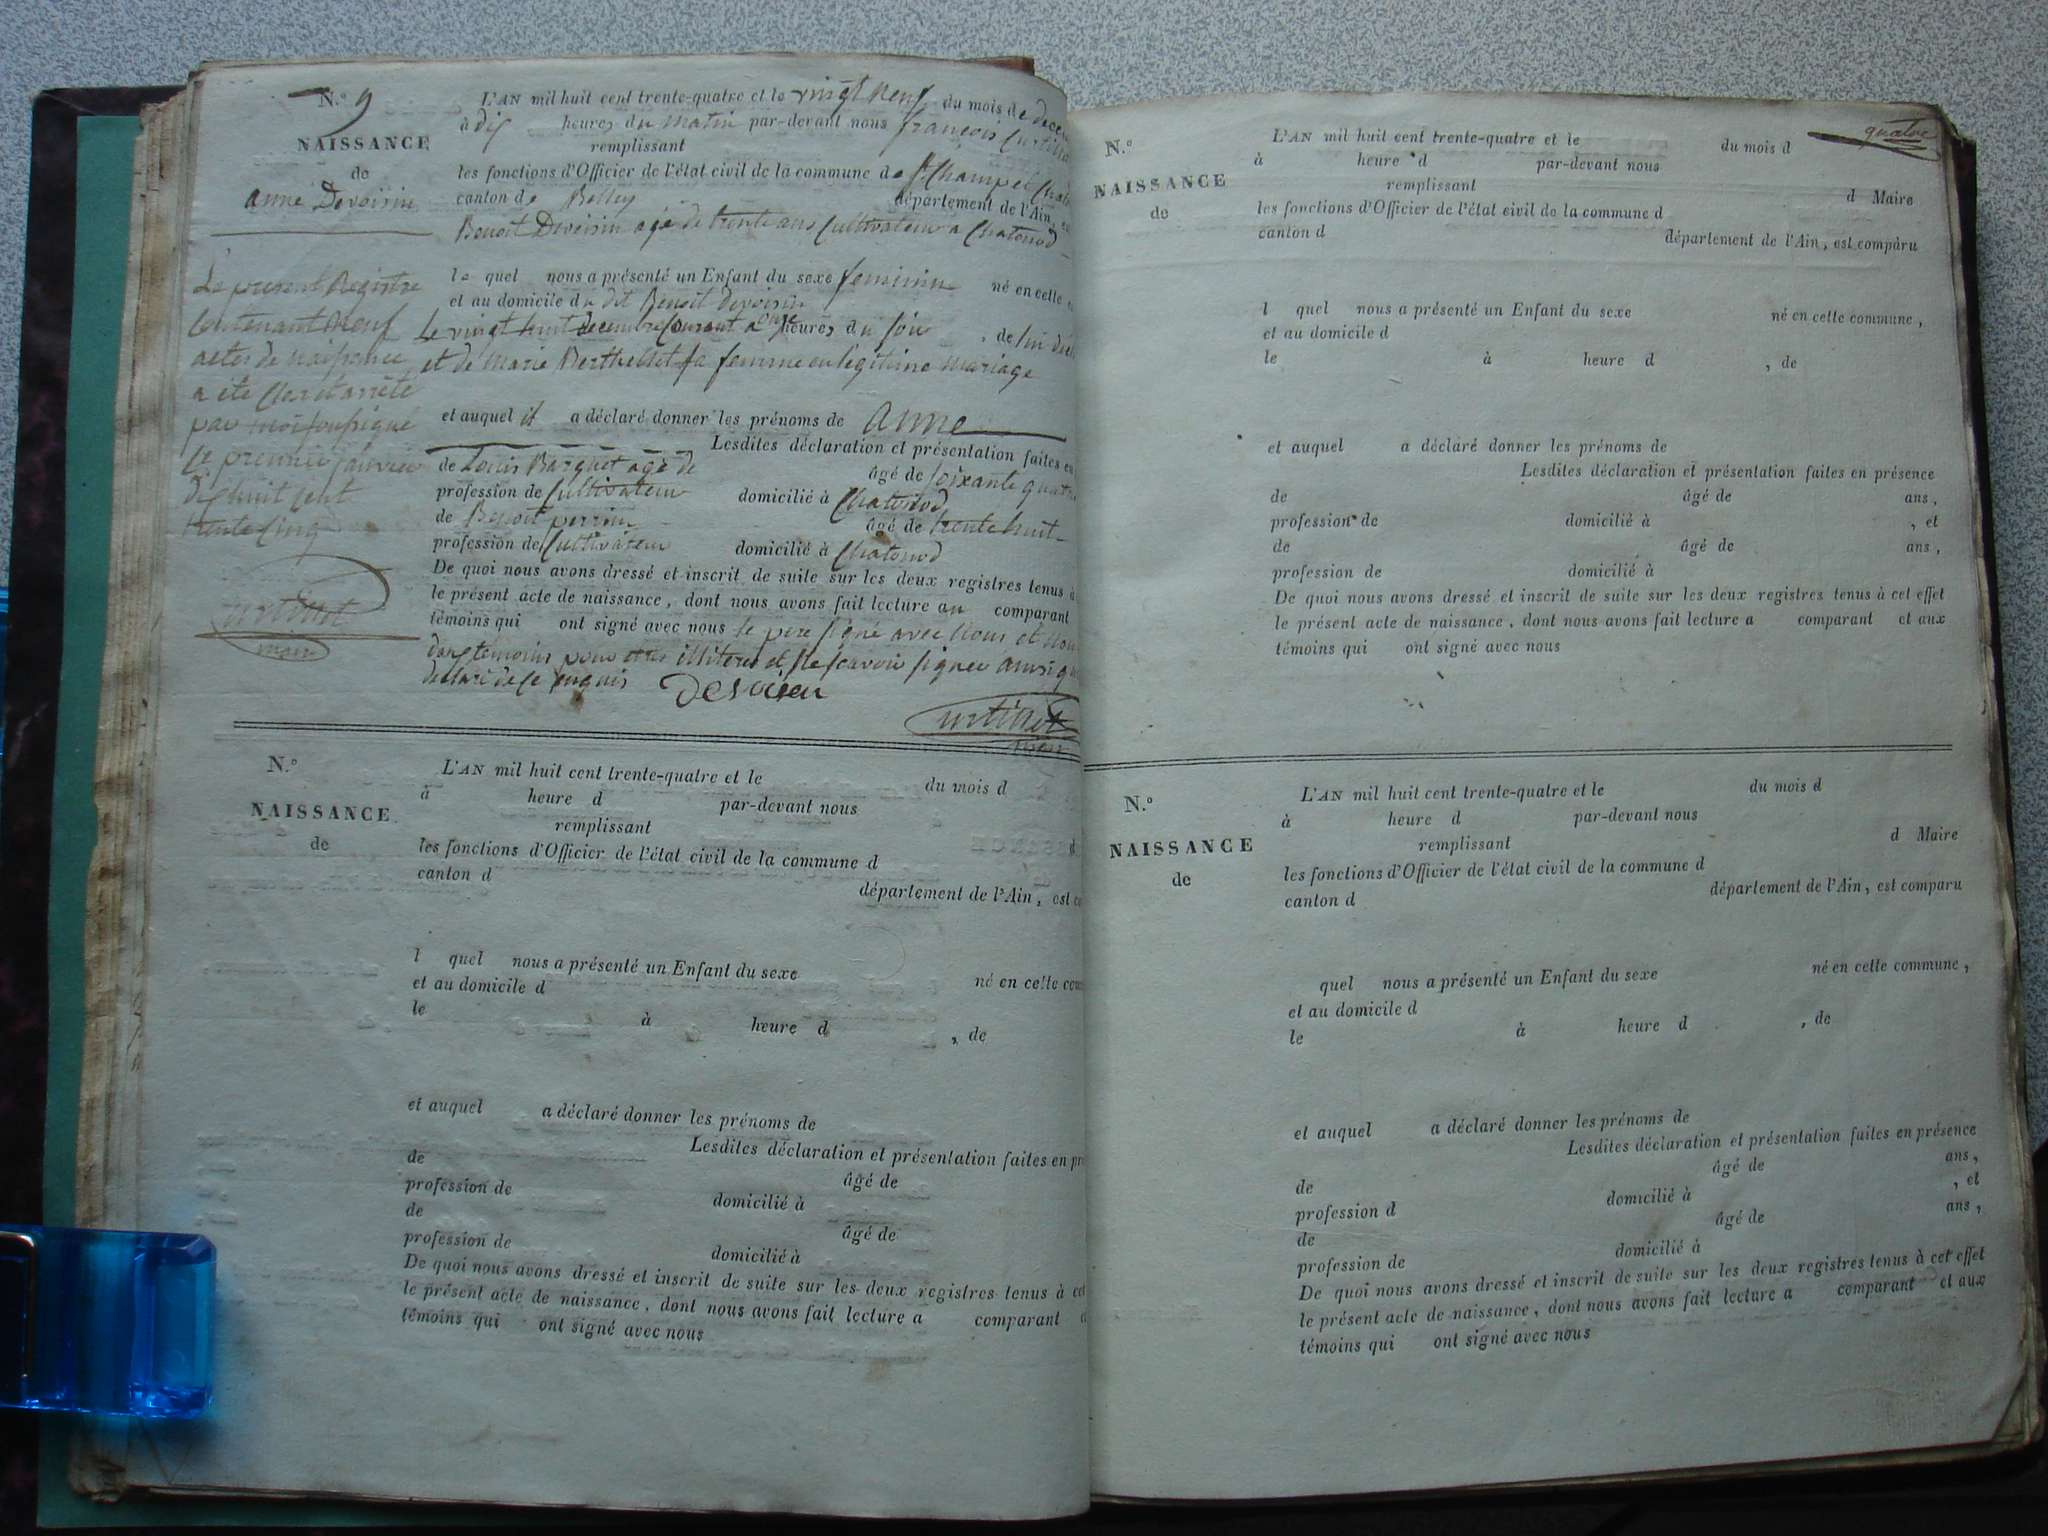 N.º 9
NAISSANCE
de
anne Devoisin
Le present Registre
Contenant Neuf
actes de naissance
a été Clos et arrêté
par moi soussigné
le premier janvier
dix huit cent
trente Cinq
maire
L'AN mil huit cent trente-quatre et le vingt neuf du mois de
à dix heures du matin par-devant nous françois
remplissant
les fonctions d'Officier de l'état civil de la commune de St Champ et
canton de Belley département de l'Ain,
Benoit Devoisin agé de trente ans Cultivateur a Chatonod
le quel nous a présenté un Enfant du sexe feminin né en cette
et au domicile du dit Benoit devoisin
Le vingt huit decembre Courant a onze heures du soir , de lui
et de Marie Berthellet sa femme en legitime Mariage
et auquel il a déclaré donner les prénoms de anne
Lesdites déclaration et présentation faites en
de Louis Barquet agé de âgé de soixante quatre
profession de Cultivateur domicilié à Chatonod
de Benoit perrin âgé de trente huit
profession de Cultivateur domicilié à Chatonod
De quoi nous avons dressé et inscrit de suite sur les deux registres tenus à
le présent acte de naissance, dont nous avons fait lecture au comparant
témoins qui ont signé avec nous le pere signé avec Nous et Non
témoins pour etre illiteres et ne savoir signer ainsi
declaré de ce enquis
N.º
NAISSANCE
de
L'AN mil huit cent trente-quatre et le du mois d
à heure d par-devant nous
remplissant
les fonctions d'Officier de l'état civil de la commune d
canton d département de l'Ain, est
l quel nous a présenté un Enfant du sexe né en cette
et au domicile d
le à heure d , de
et auquel a déclaré donner les prénoms de
Lesdites déclaration et présentation faites en
de âgé de
profession de domicilié à
de âgé de
profession de domicilié à
De quoi nous avons dressé et inscrit de suite sur les deux registres tenus à
le présent acte de naissance, dont nous avons fait lecture a comparant
témoins qui ont signé avec nous
quatre
N.º
NAISSANCE
de
L'AN mil huit cent trente-quatre et le du mois d
à heure d par-devant nous
remplissant d Maire
les fonctions d'Officier de l'état civil de la commune d
canton d département de l'Ain, est comparu
l quel nous a présenté un Enfant du sexe né en cette commune,
et au domicile d
le à heure d , de
et auquel a déclaré donner les prénoms de
Lesdites déclaration et présentation faites en présence
de âgé de ans,
profession de domicilié à , et
de âgé de ans,
profession de domicilié à
De quoi nous avons dressé et inscrit de suite sur les deux registres tenus à cet effet
le présent acte de naissance, dont nous avons fait lecture a comparant et aux
témoins qui ont signé avec nous
N.º
NAISSANCE
de
L'AN mil huit cent trente-quatre et le du mois d
à heure d par-devant nous
remplissant d Maire
les fonctions d'Officier de l'état civil de la commune d
canton d département de l'Ain, est comparu
quel nous a présenté un Enfant du sexe né en cette commune,
et au domicile d
le à heure d , de
et auquel a déclaré donner les prénoms de
Lesdites déclaration et présentation faites en présence
de âgé de ans,
profession d domicilié à , et
de âgé de ans,
profession de domicilié à
De quoi nous avons dressé et inscrit de suite sur les deux registres tenus à cet effet
le présent acte de naissance, dont nous avons fait lecture a comparant et aux
témoins qui ont signé avec nous